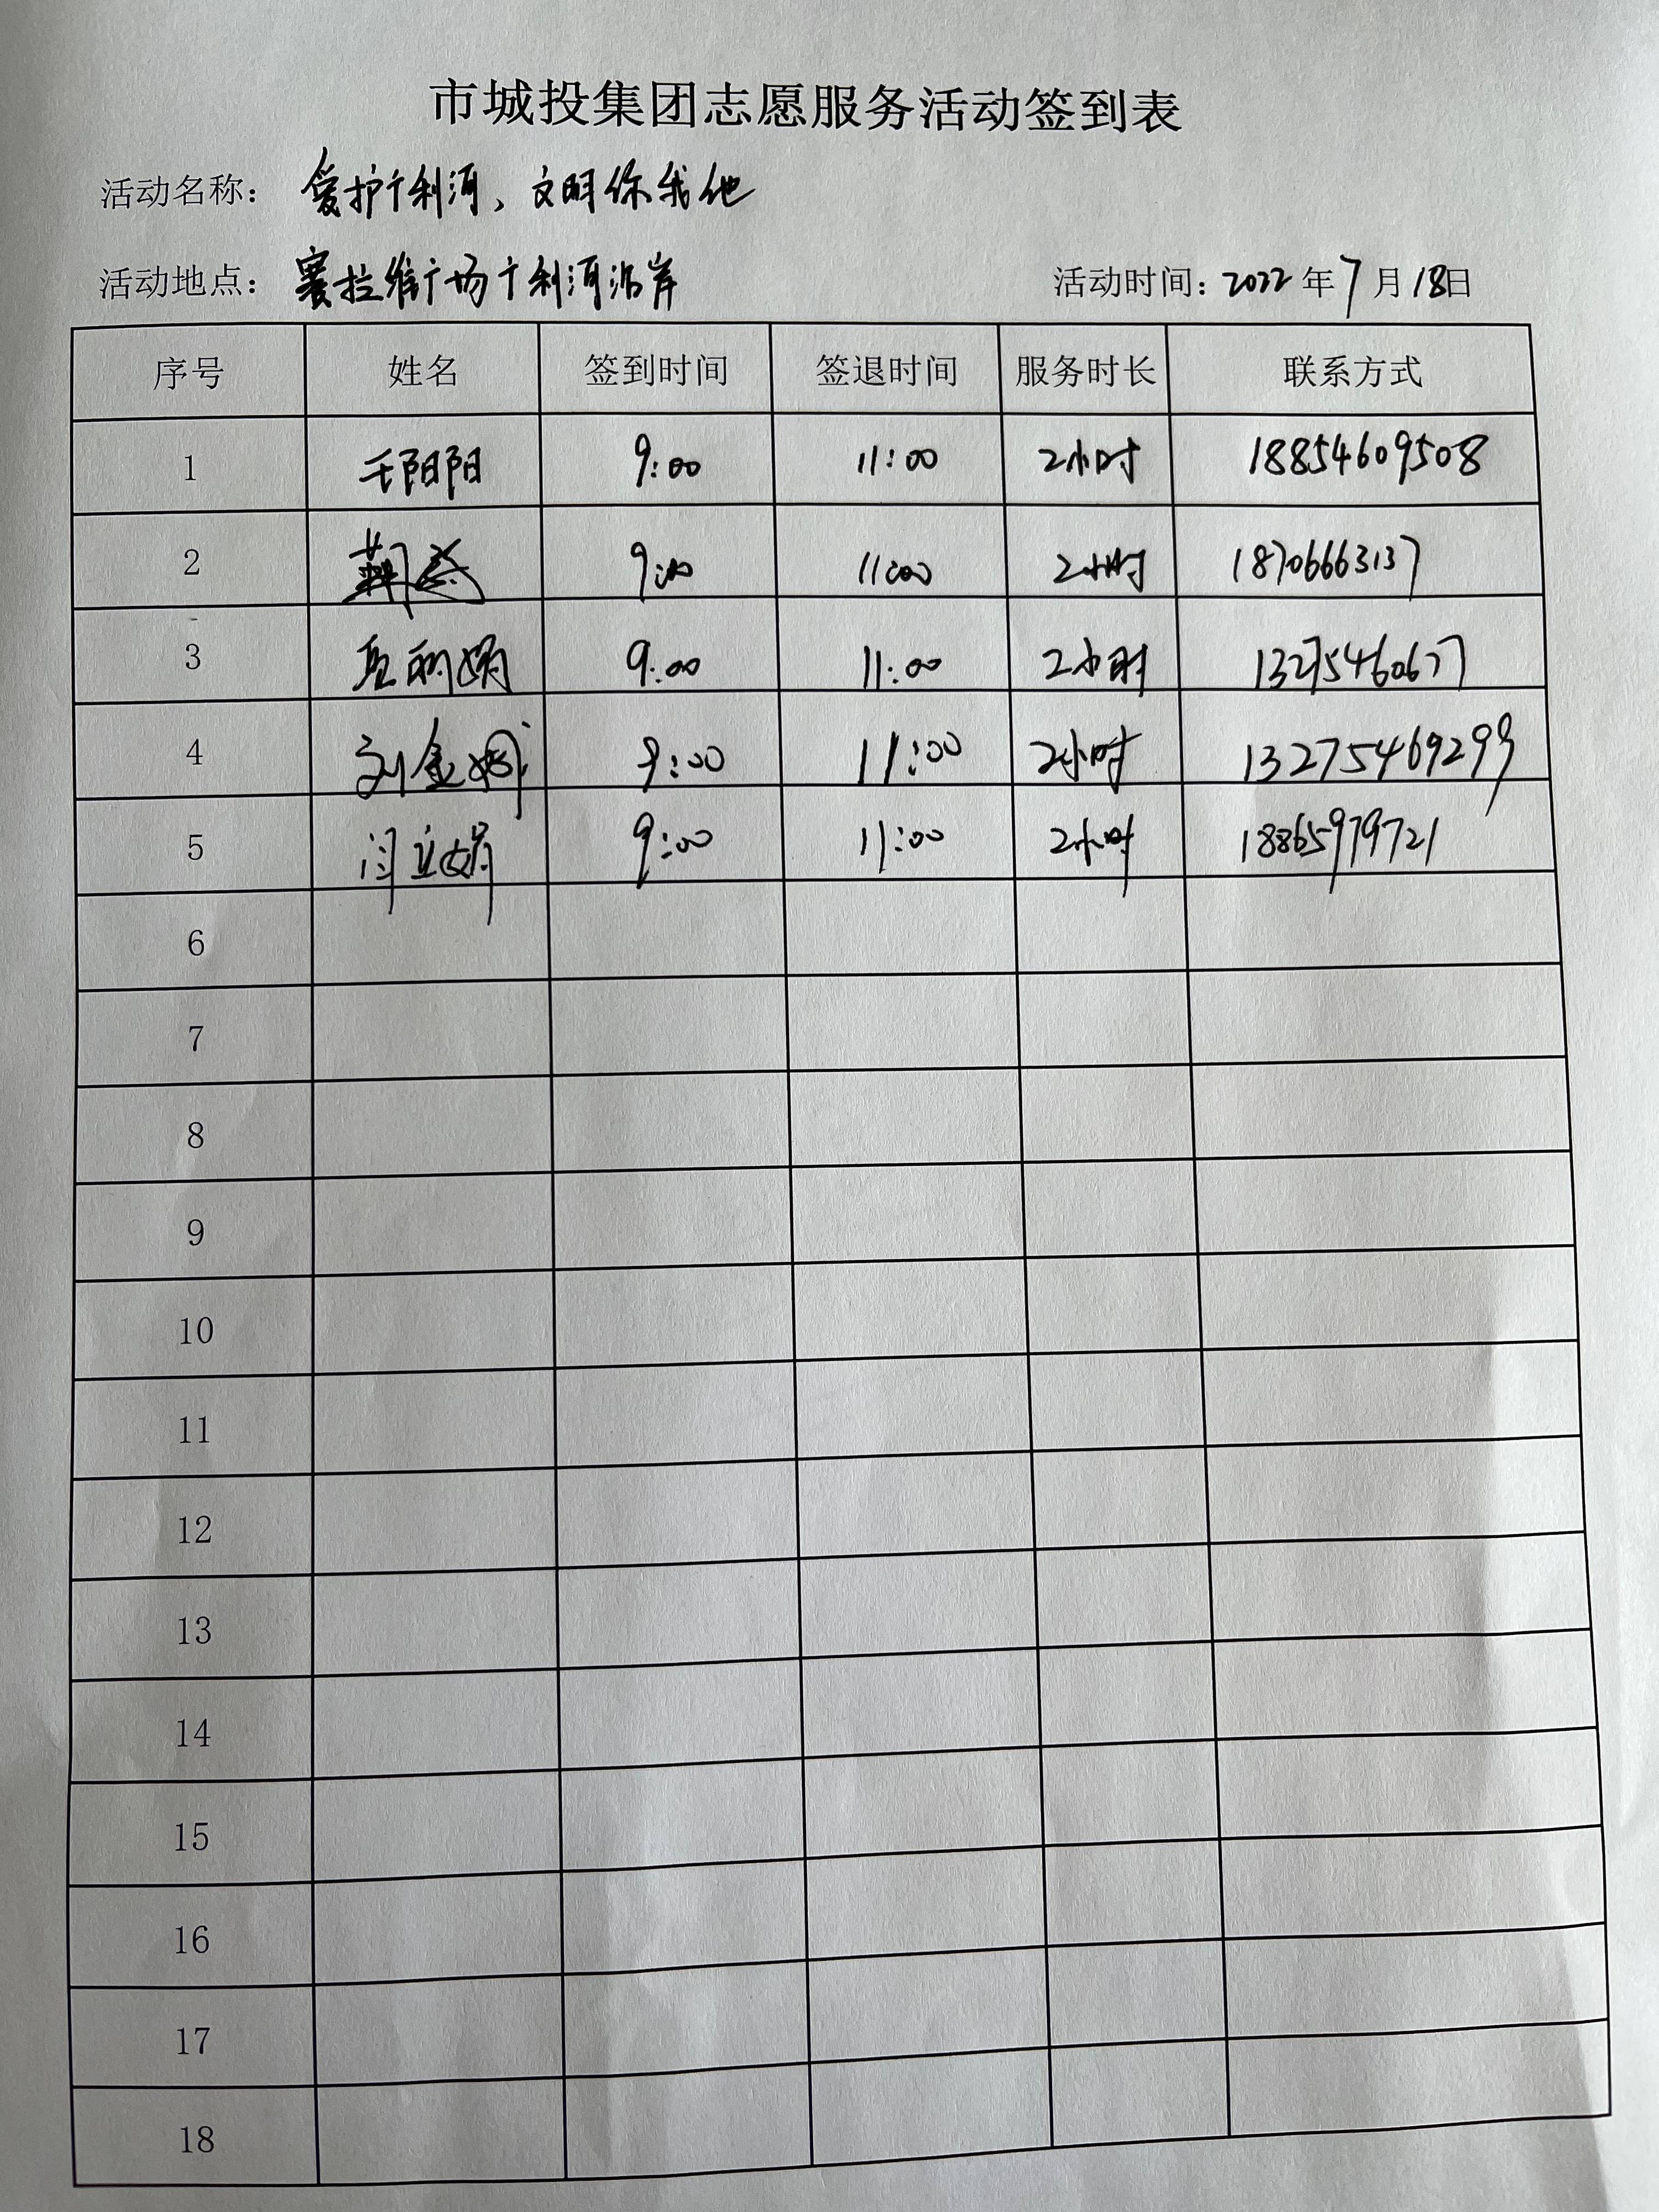 市城投集团志愿服务活动签到表
活动名称： 爱护广利河、文明你我他
活动地点： 赛拉维广场广利河沿岸 活动时间：2022年7月18日
序号 姓名 签到时间 签退时间 服务时长 联系方式
1 王阳阳 9:00 11:00 2小时 18854609508
2 9:00 11:00 2小时 18706663137
3 9:00 11:00 2小时 13275460677
4 刘金娜 9:00 11:00 2小时 13275469299
5 闫立娟 9:00 11:00 2小时 18865979721
6
7
8
9
10
11
12
13
14
15
16
17
18